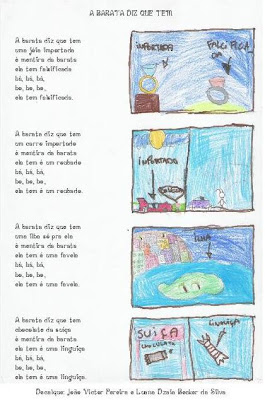 A BARATA DIZ QUE TEM
A barata diz que tem
uma jóia importada
é mentira da barata
ela tem falsificada
bá, bá, bá,
be, be, be,
ela tem falsificada.
IMPORTADA
A barata diz que tem
um carro importado
é mentira da barata
ela tem é um roubado
bá, bá, bá,
be, be, be,
ela tem é um roubado.
IMPORTADO
A barata diz que tem
uma ilha só pra ela
é mentira da barata
ela tem é uma favela
bá, bá, bá,
be, be, be,
ela tem é uma favela.
ILHA
A barata diz que tem
chocolate da suíça
é mentira da barata
ela tem é uma linguiça
bá, bá, bá,
be, be, be,
ela tem é uma linguiça.
SUIÇA
CHOCOLATE
LINGUIÇA
Decalque: João Victor Pereira e Luana Dzala Becker da Silva